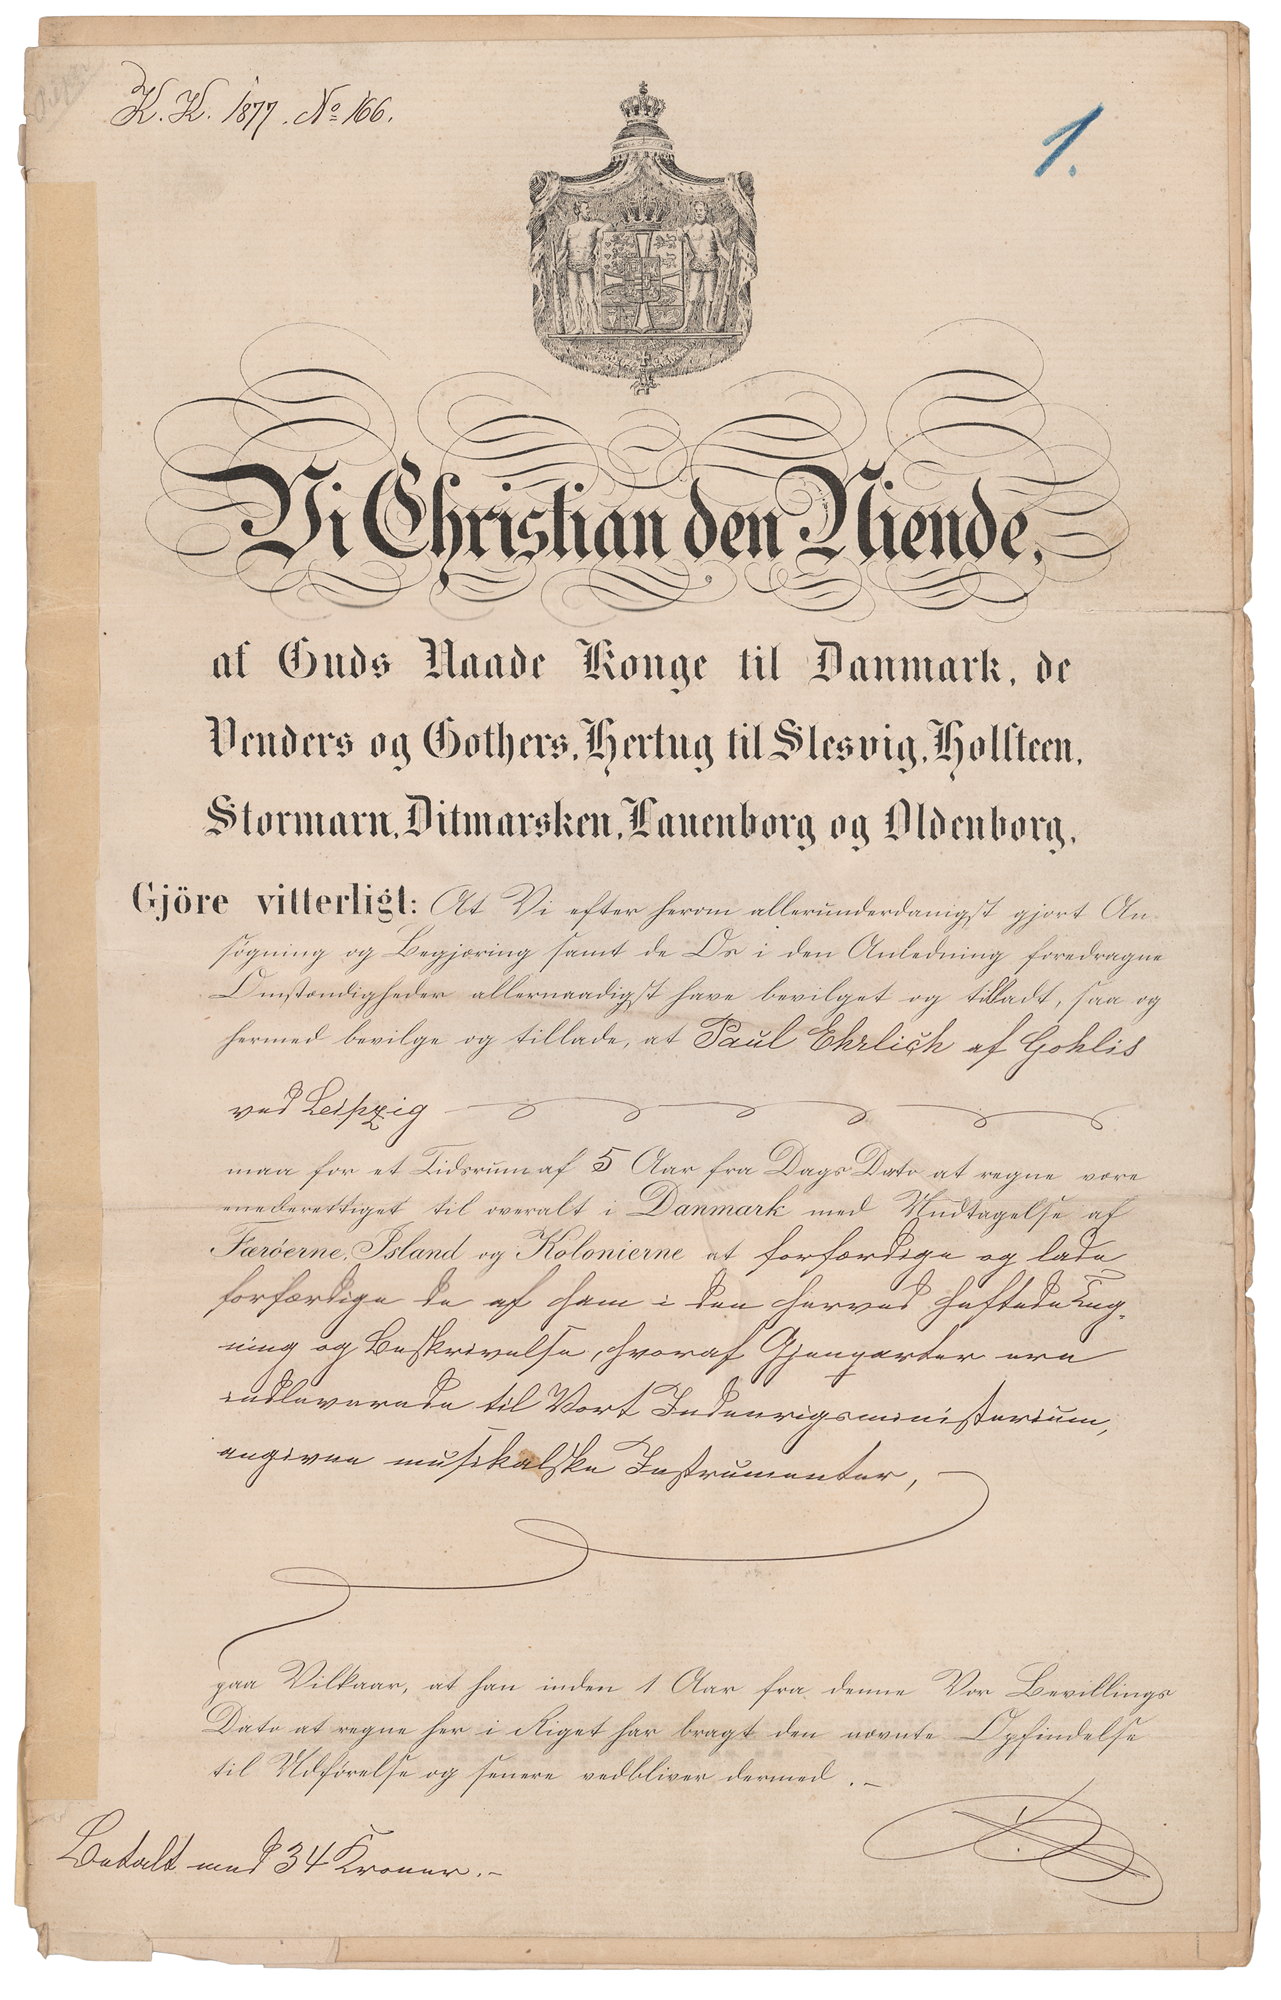 K. K. 1877. No 166.
1.
Vi Christian den Niende,
af Guds Naade Konge til Danmark, de
Venders og Gothers, Hertug til Slesvig, Holsteen,
Stormarn, Ditmarsken, Lauenborg og Oldenborg,
Gjöre vitterligt: At Vi efter herom allerunderdanigst gjort An-
søgning og Begjæring samt de Os i den Anledning foredragne
Omstændigheder allernaadigst have bevilget og tilladt, saa og
hermed bevilge og tillade, at Paul Ehrlich af Gohlis
ved Leipzig
maa for et Tidsrum af 5 Aar fra Dags Dato at regne være
eneberettiget til overalt i Danmark med Undtagelse af
Færöerne, Island og Kolonierne at forfærdige og lade
forfærdige de af ham i den herved heftede Teg-
ning og Beskrivelse, hvoraf Gjenparter ere
indleverede til Vort Indenrigsministerium,
angivne musikalske Instrumenter,
paa Vilkaar, at han inden 1 Aar fra denne Vor Bevillings
Dato at regne her i Riget har bragt den nævnte Opfindelse
til Udførelse og senere vedbliver dermed.
Betalt med 34 Kroner.